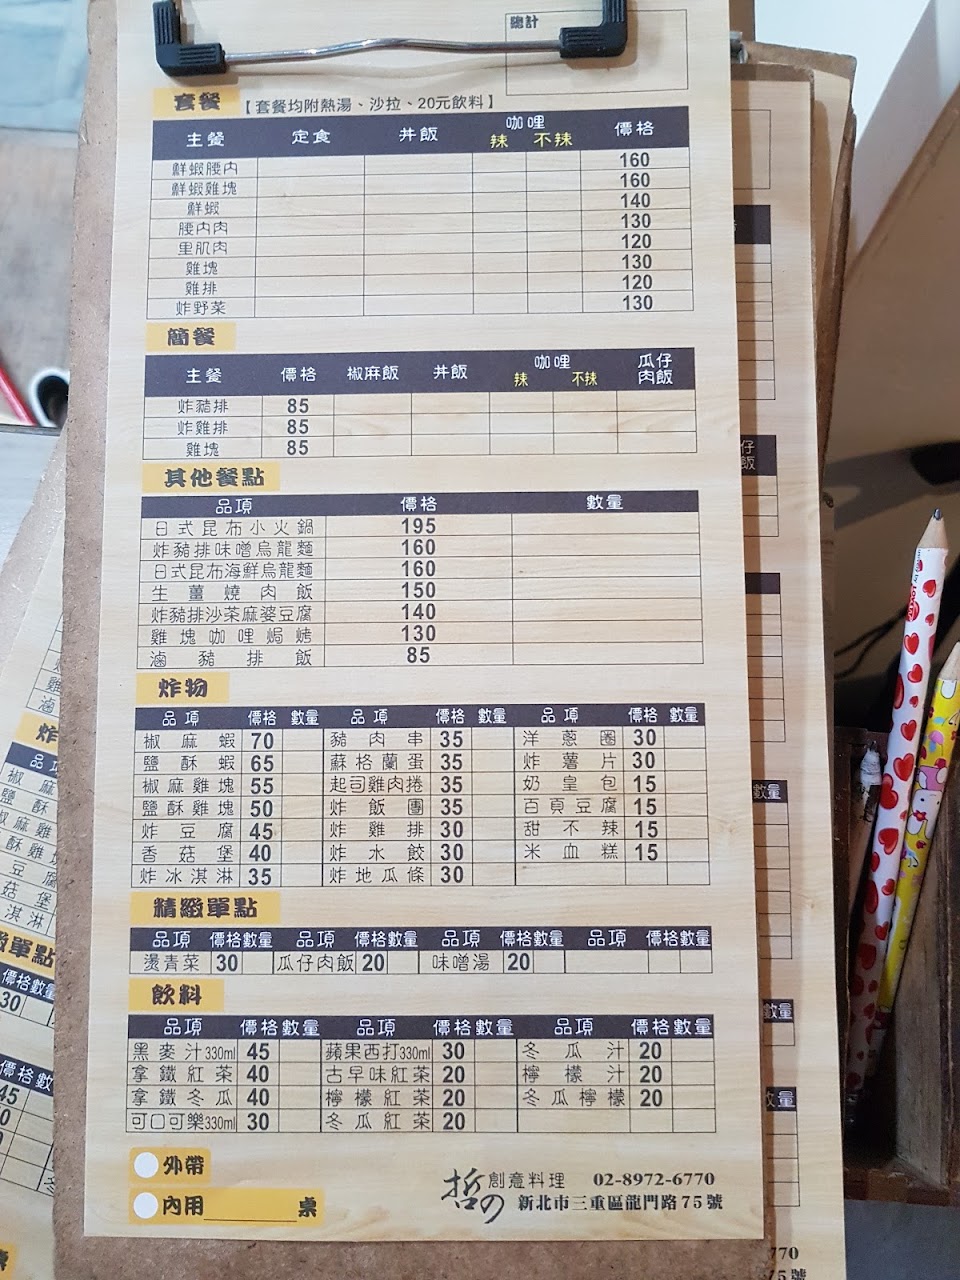 總計
套餐【套餐均附熱湯、沙拉、20元飲料】
主餐 定食 丼飯 咖哩 辣 不辣 價格
鮮蝦腰內 160
鮮蝦雞塊 160
鮮蝦 140
腰內肉 130
里肌肉 120
雞塊 130
雞排 120
炸野菜 130
簡餐
主餐 價格 椒麻飯 丼飯 咖哩 辣 不辣 瓜仔肉飯
炸豬排 85
炸雞排 85
雞塊 85
其他餐點
品項 價格 數量
日式昆布小火鍋 195
炸豬排味噌烏龍麵 160
日式昆布海鮮烏龍麵 160
生薑燒肉飯 150
炸豬排沙茶麻婆豆腐 140
雞塊咖哩焗烤 130
滷豬排飯 85
炸物
品項 價格 數量 品項 價格 數量 品項 價格 數量
椒麻蝦 70 豬肉串 35 洋蔥圈 30
鹽酥蝦 65 蘇格蘭蛋 35 炸薯片 30
椒麻雞塊 55 起司雞肉捲 35 奶皇包 15
鹽酥雞塊 50 炸飯團 35 百頁豆腐 15
炸豆腐 45 炸雞排 30 甜不辣 15
香菇堡 40 炸水餃 30 米血糕 15
炸冰淇淋 35 炸地瓜條 30
精緻單點
品項 價格 數量 品項 價格 數量 品項 價格 數量 品項 價格 數量
燙青菜 30 瓜仔肉飯 20 味噌湯 20
飲料
品項 價格 數量 品項 價格 數量 品項 價格 數量
黑麥汁330ml 45 蘋果西打330ml 30 冬瓜汁 20
拿鐵紅茶 40 古早味紅茶 20 檸檬汁 20
拿鐵冬瓜 40 檸檬紅茶 20 冬瓜檸檬 20
可口可樂330ml 30 冬瓜紅茶 20
外帶
內用 桌
哲の 創意料理 02-8972-6770
新北市三重區龍門路75號